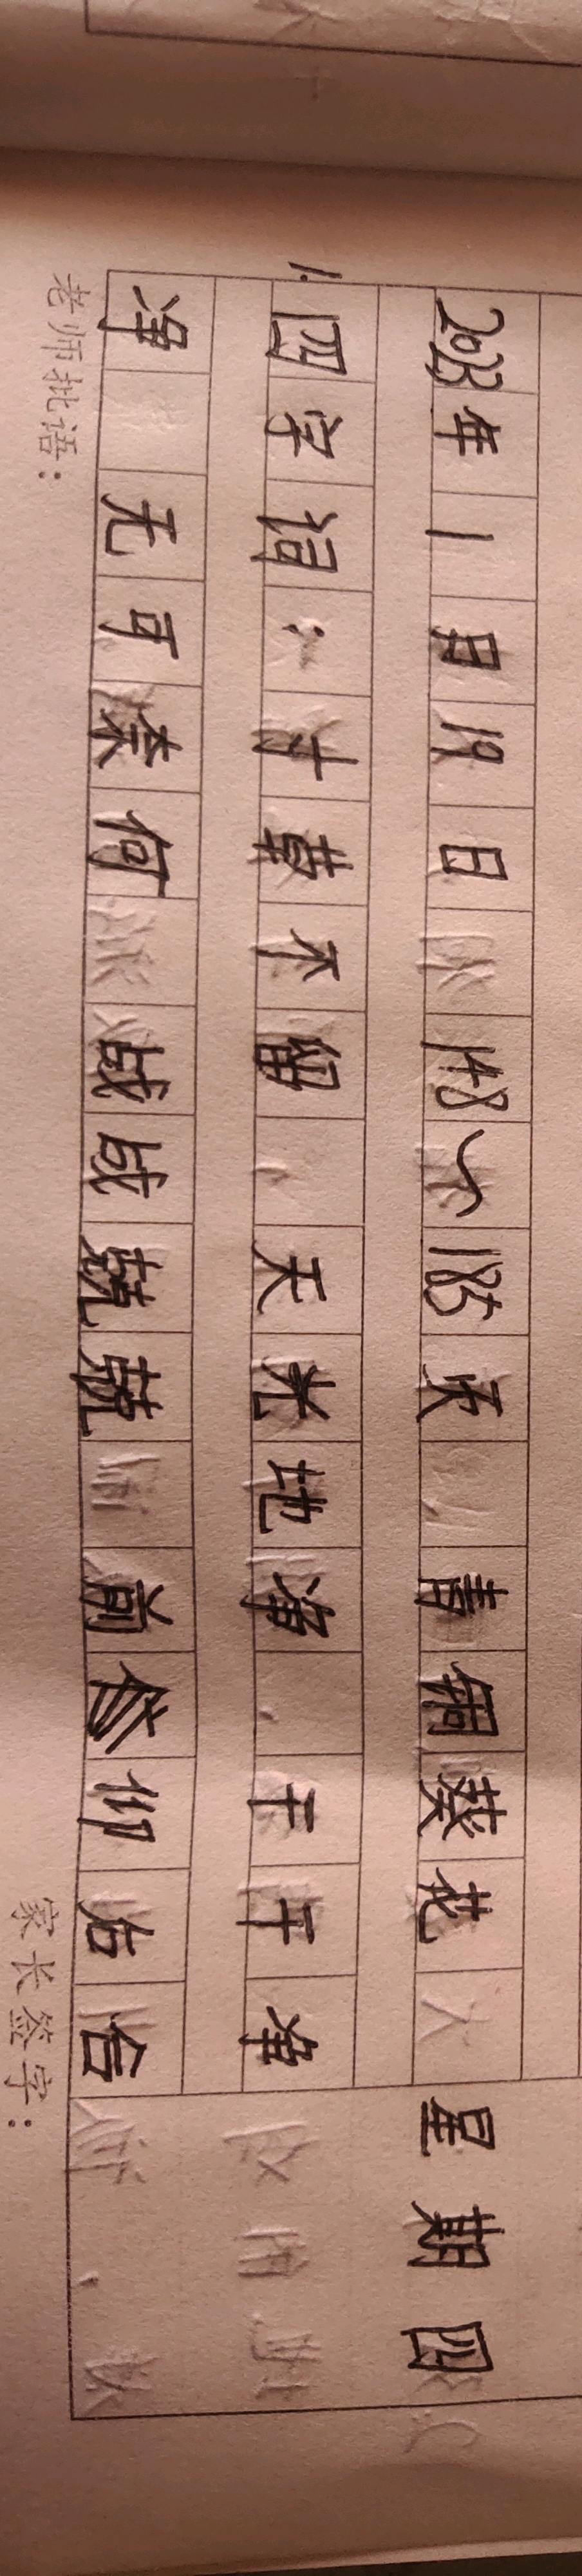 2023年1月19日 148~185页 青铜葵花 星期四
1.四字词:寸草不留 天光地净 干干净
净 无可奈何 战战兢兢 前俯仰后合
老师批语: 家长签字: